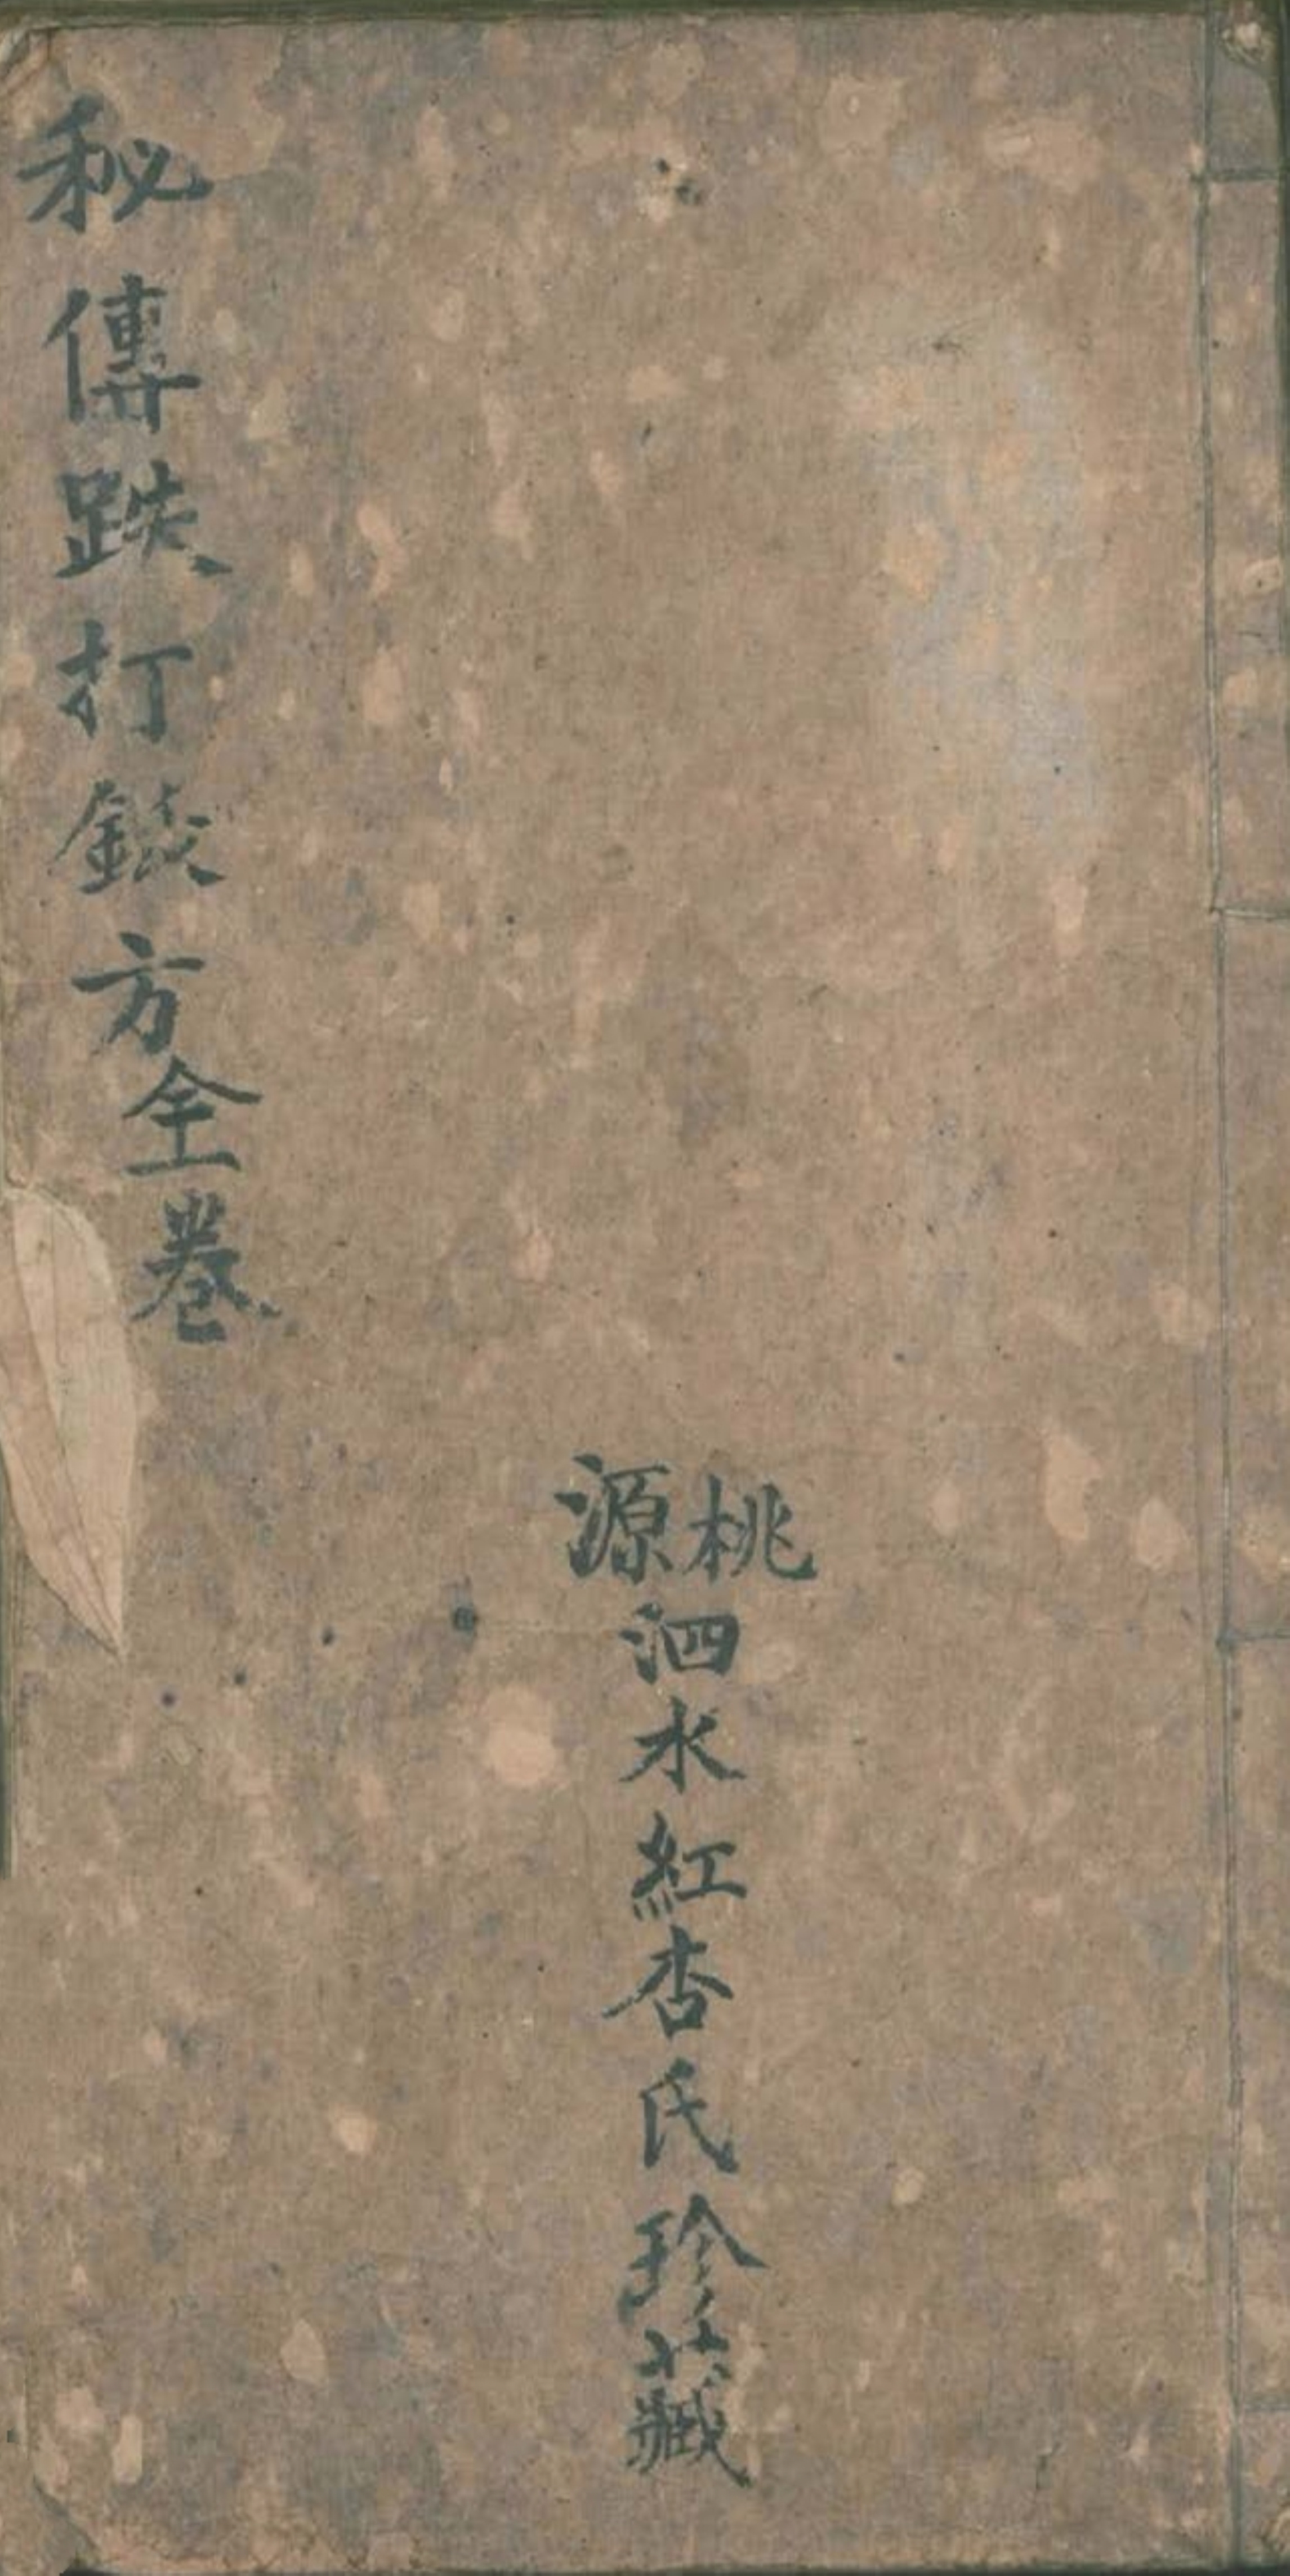 桃源
泗水紅杏氏珍藏
秘傳跌打錟方全卷